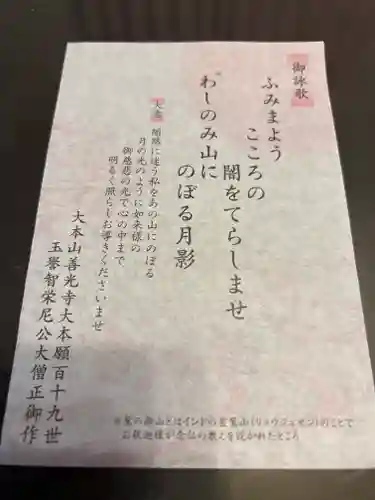 御詠歌
ふみまよう
こころの
闇をてらしませ
わしのみ山に
のぼる月影
大意
煩悩に迷う私をあの山にのぼる
月の光のように如来様の
御慈悲の光で心の中まで
明るく照らしお導きくださいませ
大本山善光寺大本願百十九世
玉誉智栄尼公大僧正御作
※鷲の御山とはインドの霊鷲山(リョウジュセン)のことで
お釈迦様が念仏の教えを説かれたところ